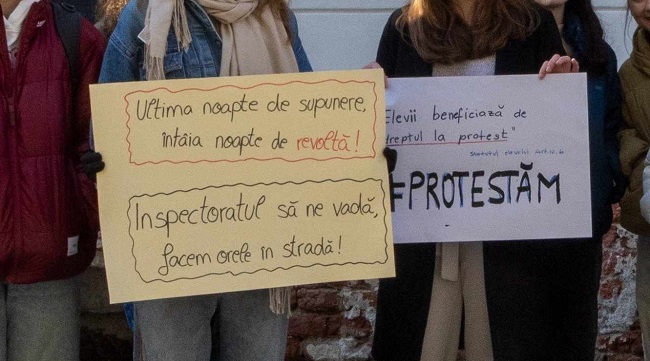 Ultima noapte de supunere,
întâia noapte de revoltă!
Inspectoratul să ne vadă,
facem orele în stradă!
Elevii beneficiază de
dreptul la protest"
Statutul elevului
#PROTESTĂM